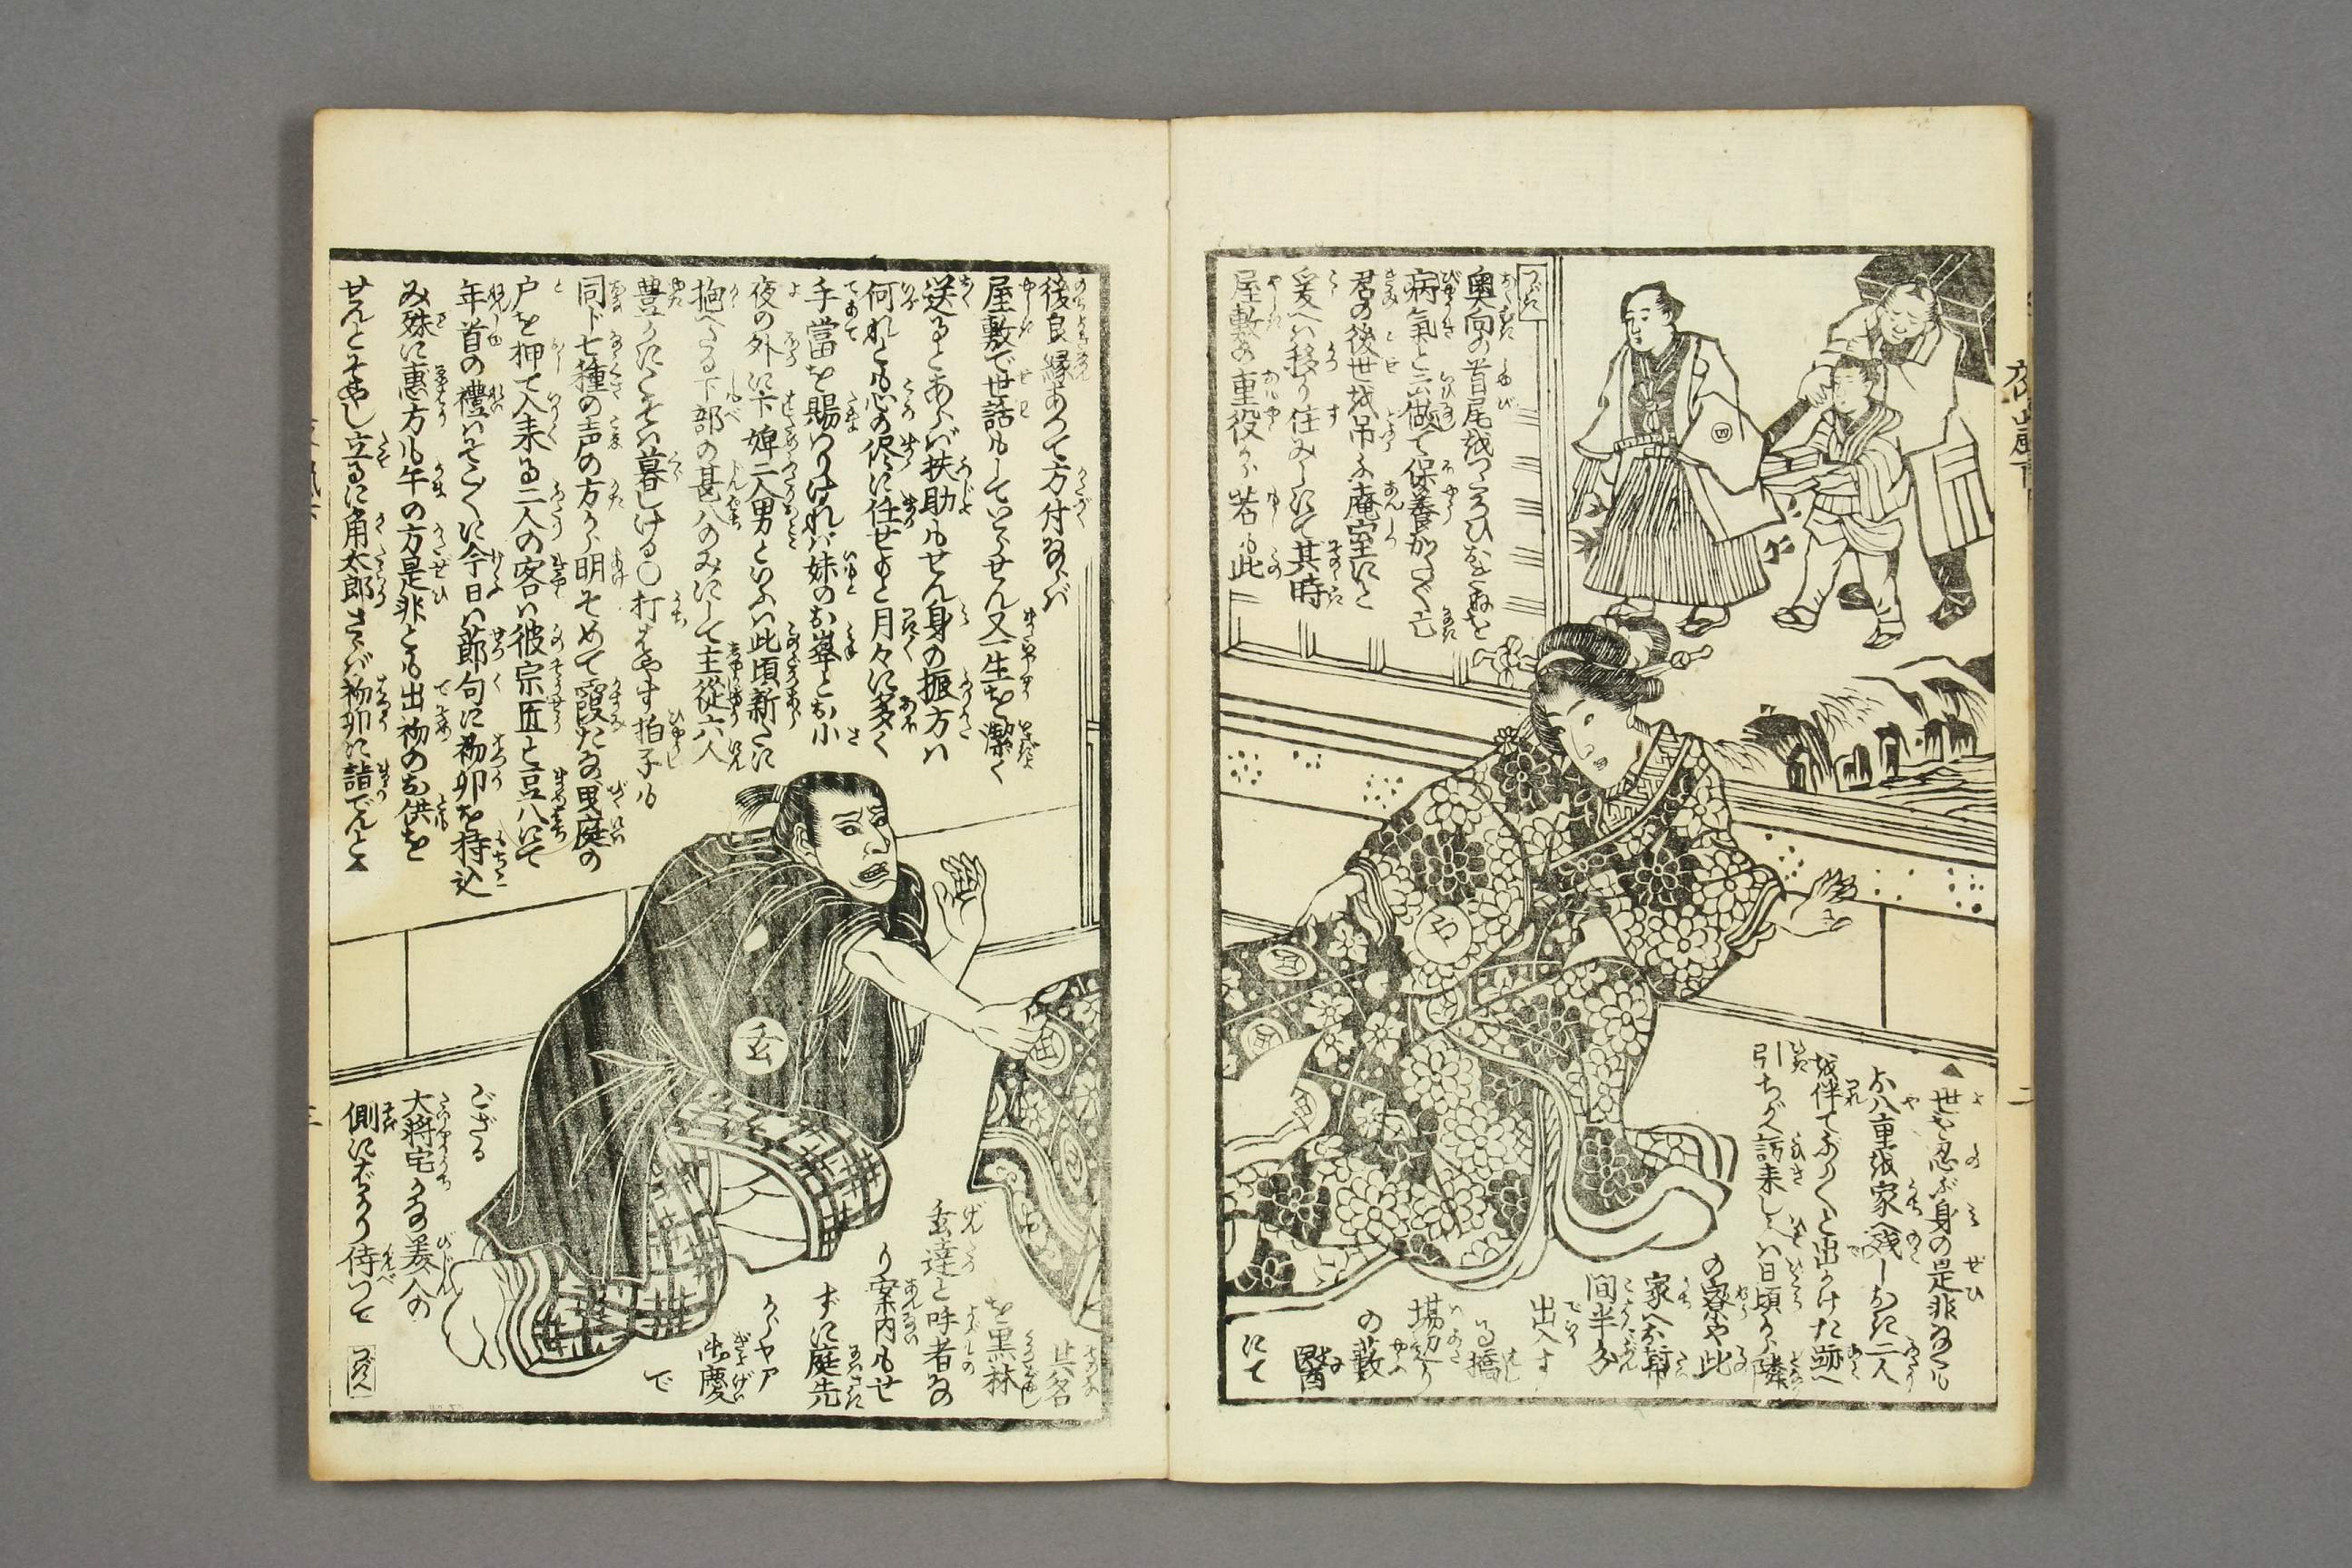 つゞき
奥向の首尾我つくろひおくゆゑを
病氣と云做て保養かた〲亡
君の後世を吊ふ庵室にと
爰へは移り住みしにて其時
屋敷の重役から若し此
後良縁あつて方付ならば
屋敷で世話もしていらせん又一生を潔く
送るとあらば扶助もせん身の振方は
何れとも心の侭に任せよと月々に多く
手當を賜はりければ妹のお峯とお小
夜の外に下婢二人男といふは此頃新たに
抱へたる下部の甚八のみにして主従六人
豊かにこそは暮しける〇打はやす拍子も
同じ七種の声の方から明そめて霞たな曳庭の
戸を押て入来る二人の客は彼宗匠と豆八にて
年首の禮はそこ〱に今日は莭句に初卯を持込
み殊に恵方も午の方是非とも出初のお供を
せんとそゝやし立るに角太郎さらば初卯に詣でんと▲
▲世を忍ぶ身の是非なくも
お八重を家へ残しおき二人
を伴てぶら〱と出かけた跡へ
引ちがへ訪来しは日頃から隣
の寮や此
家へお幇
間半分
出入す
る橋
場辺り
の藪
醫
にて
其名
を黒林
玄達と呼者なの
り案内もせ
ずに庭先
からヤア
御慶
で
ござる
大将宅かな美人の
側にばかり侍つて
つぎへ
玄
四
二